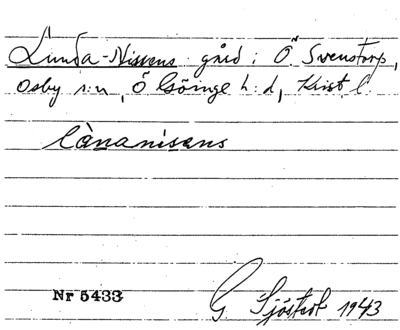 Lunda-Nissens gård i Ö. Svenstorp,
Osby s:n, Ö Göinge h:d, Krist. l.
lànanisens
Nr 5433
G Sjöstedt 1943